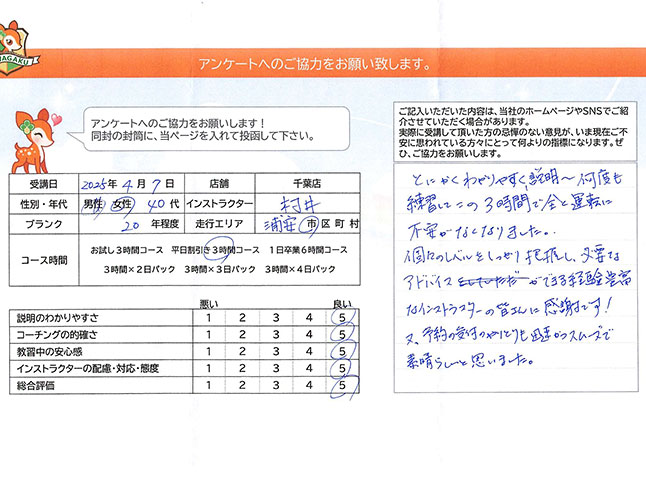 NAGAKU
アンケートへのご協力をお願い致します。
アンケートへのご協力をお願いします！
同封の封筒に、当ページを入れて投函して下さい。
受講日 2025年 4月 7日 店舗 千葉店
性別・年代 男性 女性 40代 インストラクター 村井
ブランク 20 年程度 走行エリア 浦安 市区町村
コース時間 お試し3時間コース 平日割引き3時間コース 1日卒業6時間コース
3時間×2日パック 3時間×3日パック 3時間×4日パック
悪い 良い
説明のわかりやすさ 1 2 3 4 5
コーチングの的確さ 1 2 3 4 5
教習中の安心感 1 2 3 4 5
インストラクターの配慮・対応・態度 1 2 3 4 5
総合評価 1 2 3 4 5
ご記入いただいた内容は、当社のホームページやSNSでご紹
介させていただく場合があります。
実際に受講して頂いた方の忌憚のない意見が、いま現在ご不
安に思われている方々にとって何よりの指標になります。ぜ
ひ、ご協力をお願いします。
とにかくわかりやすく説明〜何度も
練習してこの3時間で全く運転に
不安がなくなりました。
個々のレベルをしっかり把握し、必要な
アドバイスができる経験豊富
なインストラクターの皆さんに感謝です！
又、予約の受付のやりとりも迅速かつスムーズで
素晴らしいと思いました。